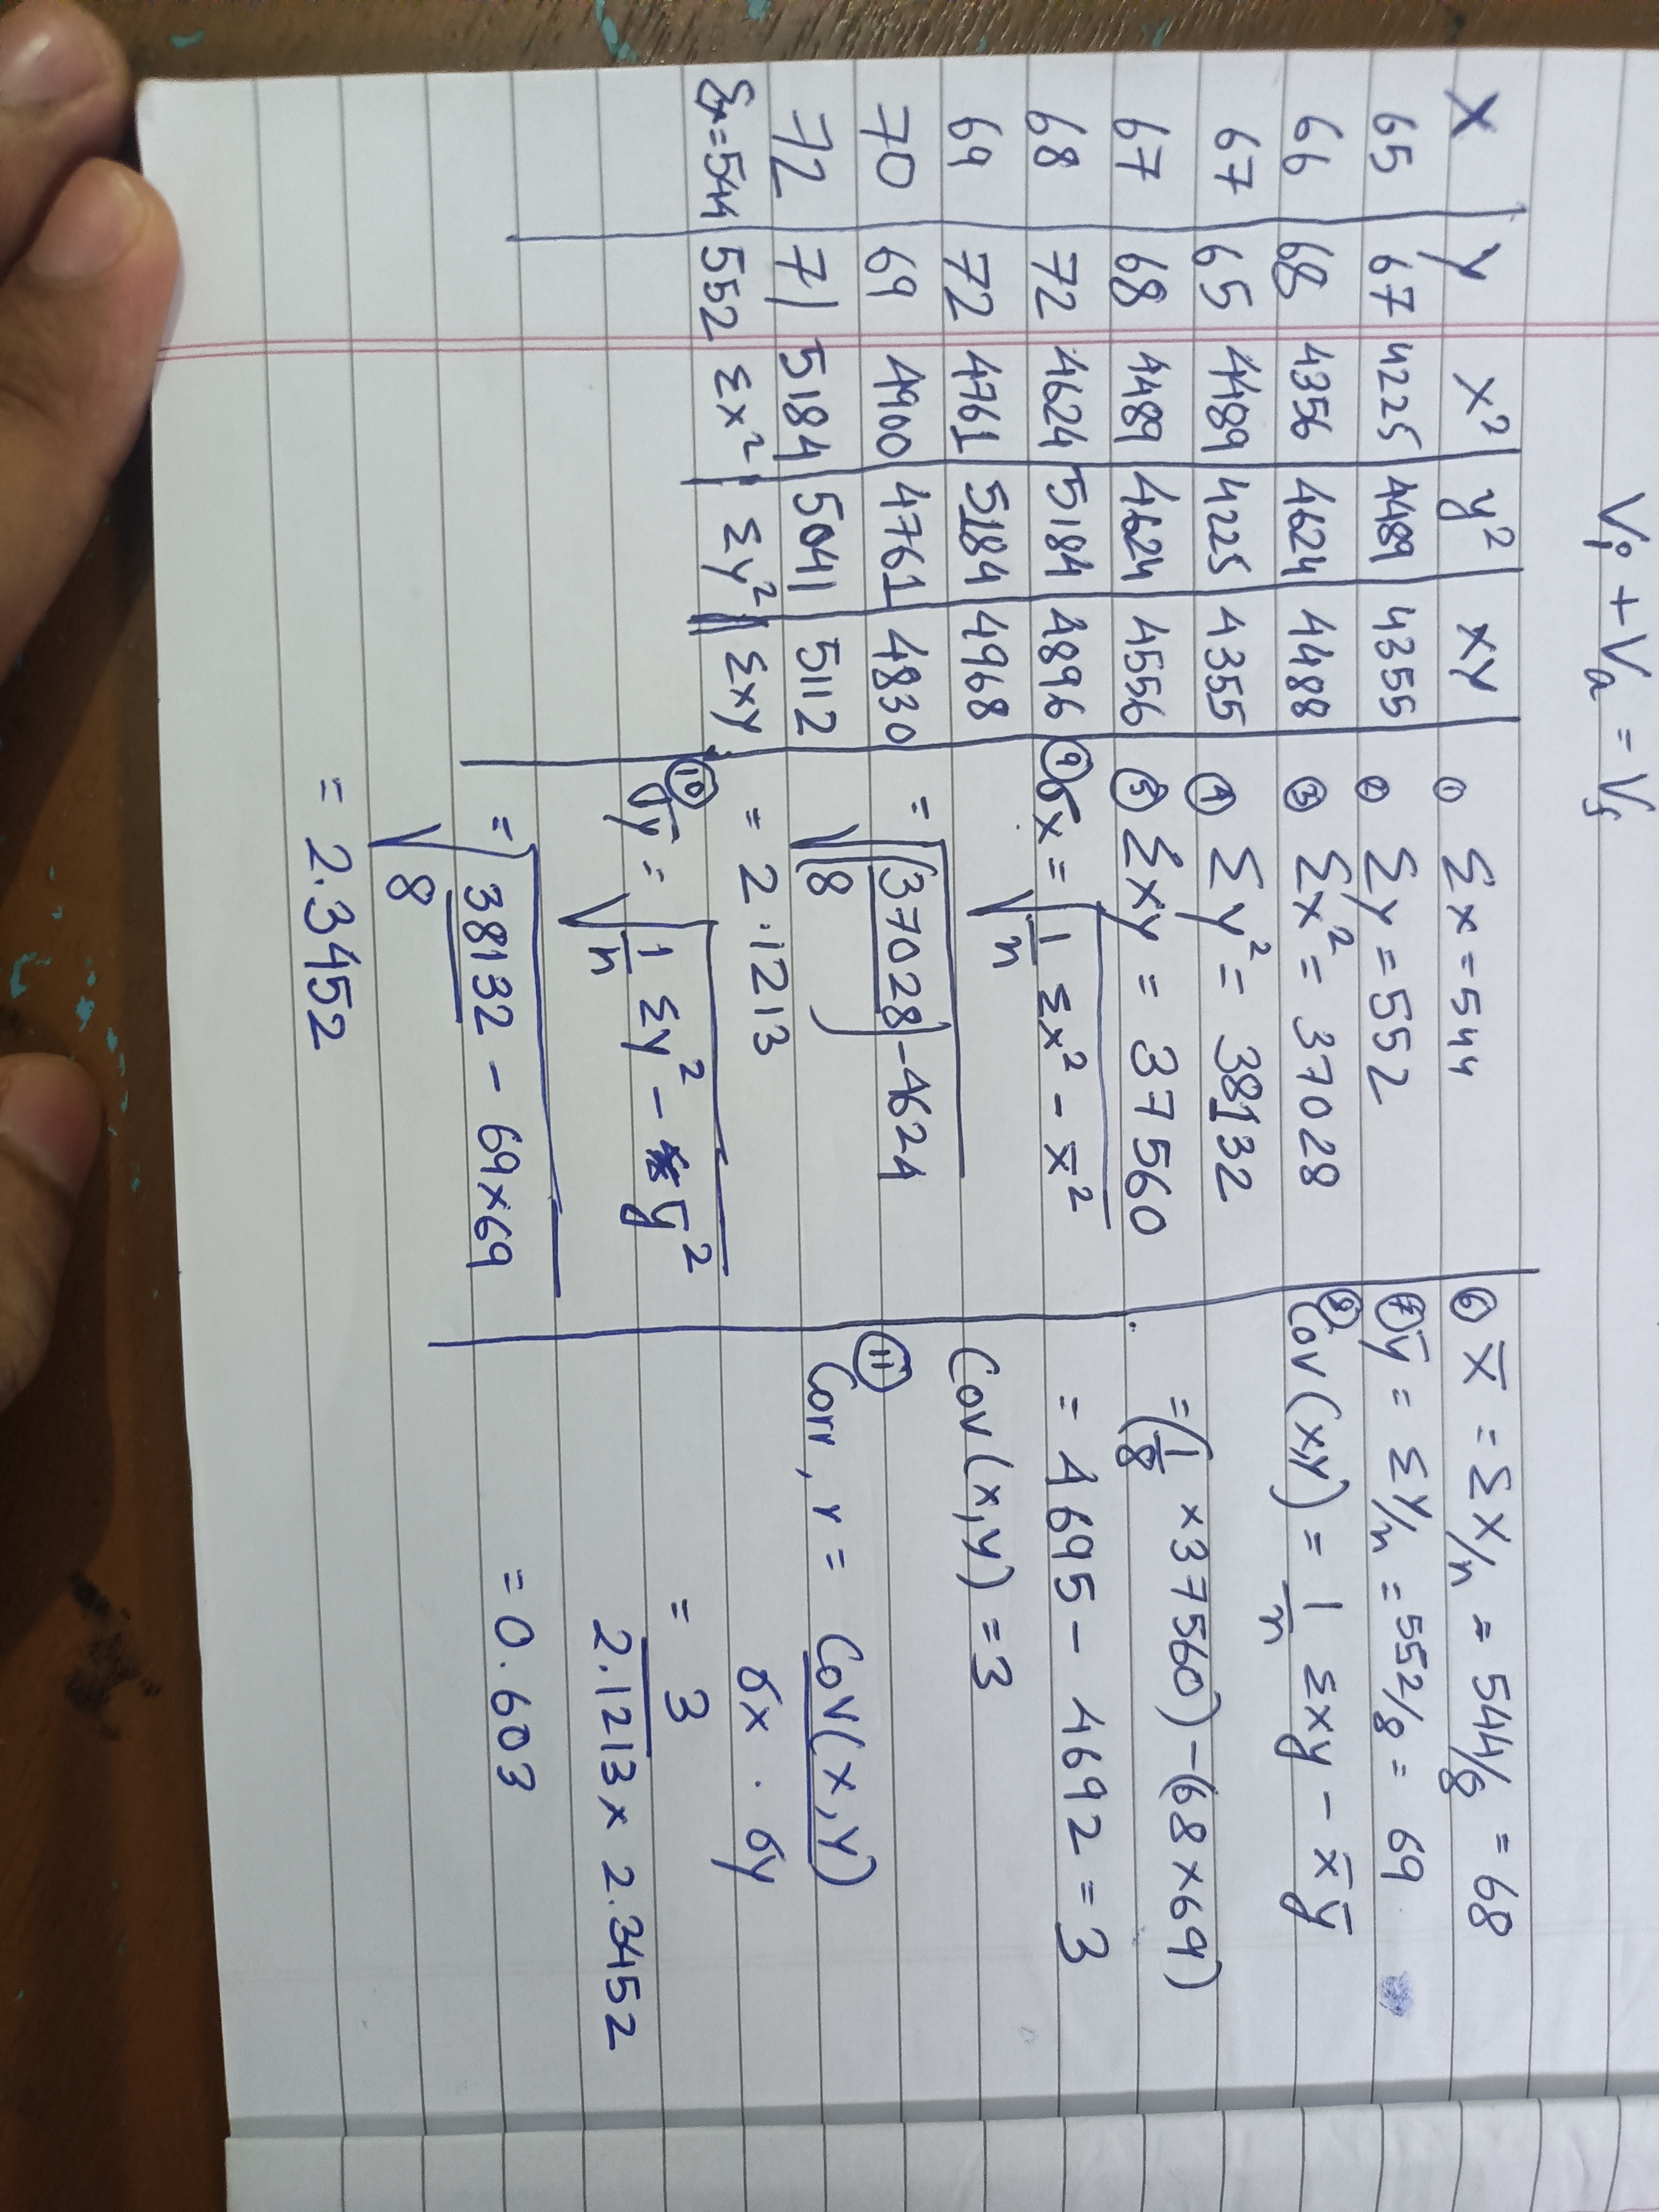 Vi + Va = Vs
X Y X² y² XY
65 67 4225 4489 4355
66 68 4356 4624 4488
67 65 4489 4225 4355
67 68 4489 4624 4556
68 72 4624 5184 4896
69 72 4761 5184 4968
70 69 4900 4761 4830
72 71 5184 5041 5112
Σx=544 552 Σx² Σy² Σxy
① Σx = 544
② Σy = 552
③ Σx² = 37028
④ Σy² = 38132
⑤ Σxy = 37560
⑨ σx = √(1/n Σx² - x̄²)
= √((37028/8) - 4624
= 2.1213
⑩ σy = √(1/n Σy² - ȳ²)
= √(38132/8 - 69×69)
= 2.3452
⑥ X̄ = ΣX/n = 544/8 = 68
⑦ ȳ = ΣY/n = 552/8 = 69
⑨ Cov(x,y) = 1/n Σxy - x̄ȳ
= (1/8 × 37560) - (68×69)
= 4695 - 4692 = 3
Cov(x,y) = 3
⑪ Corr, r = Cov(x,y)
σx · σy
= 3
2.1213 × 2.3452
= 0.603